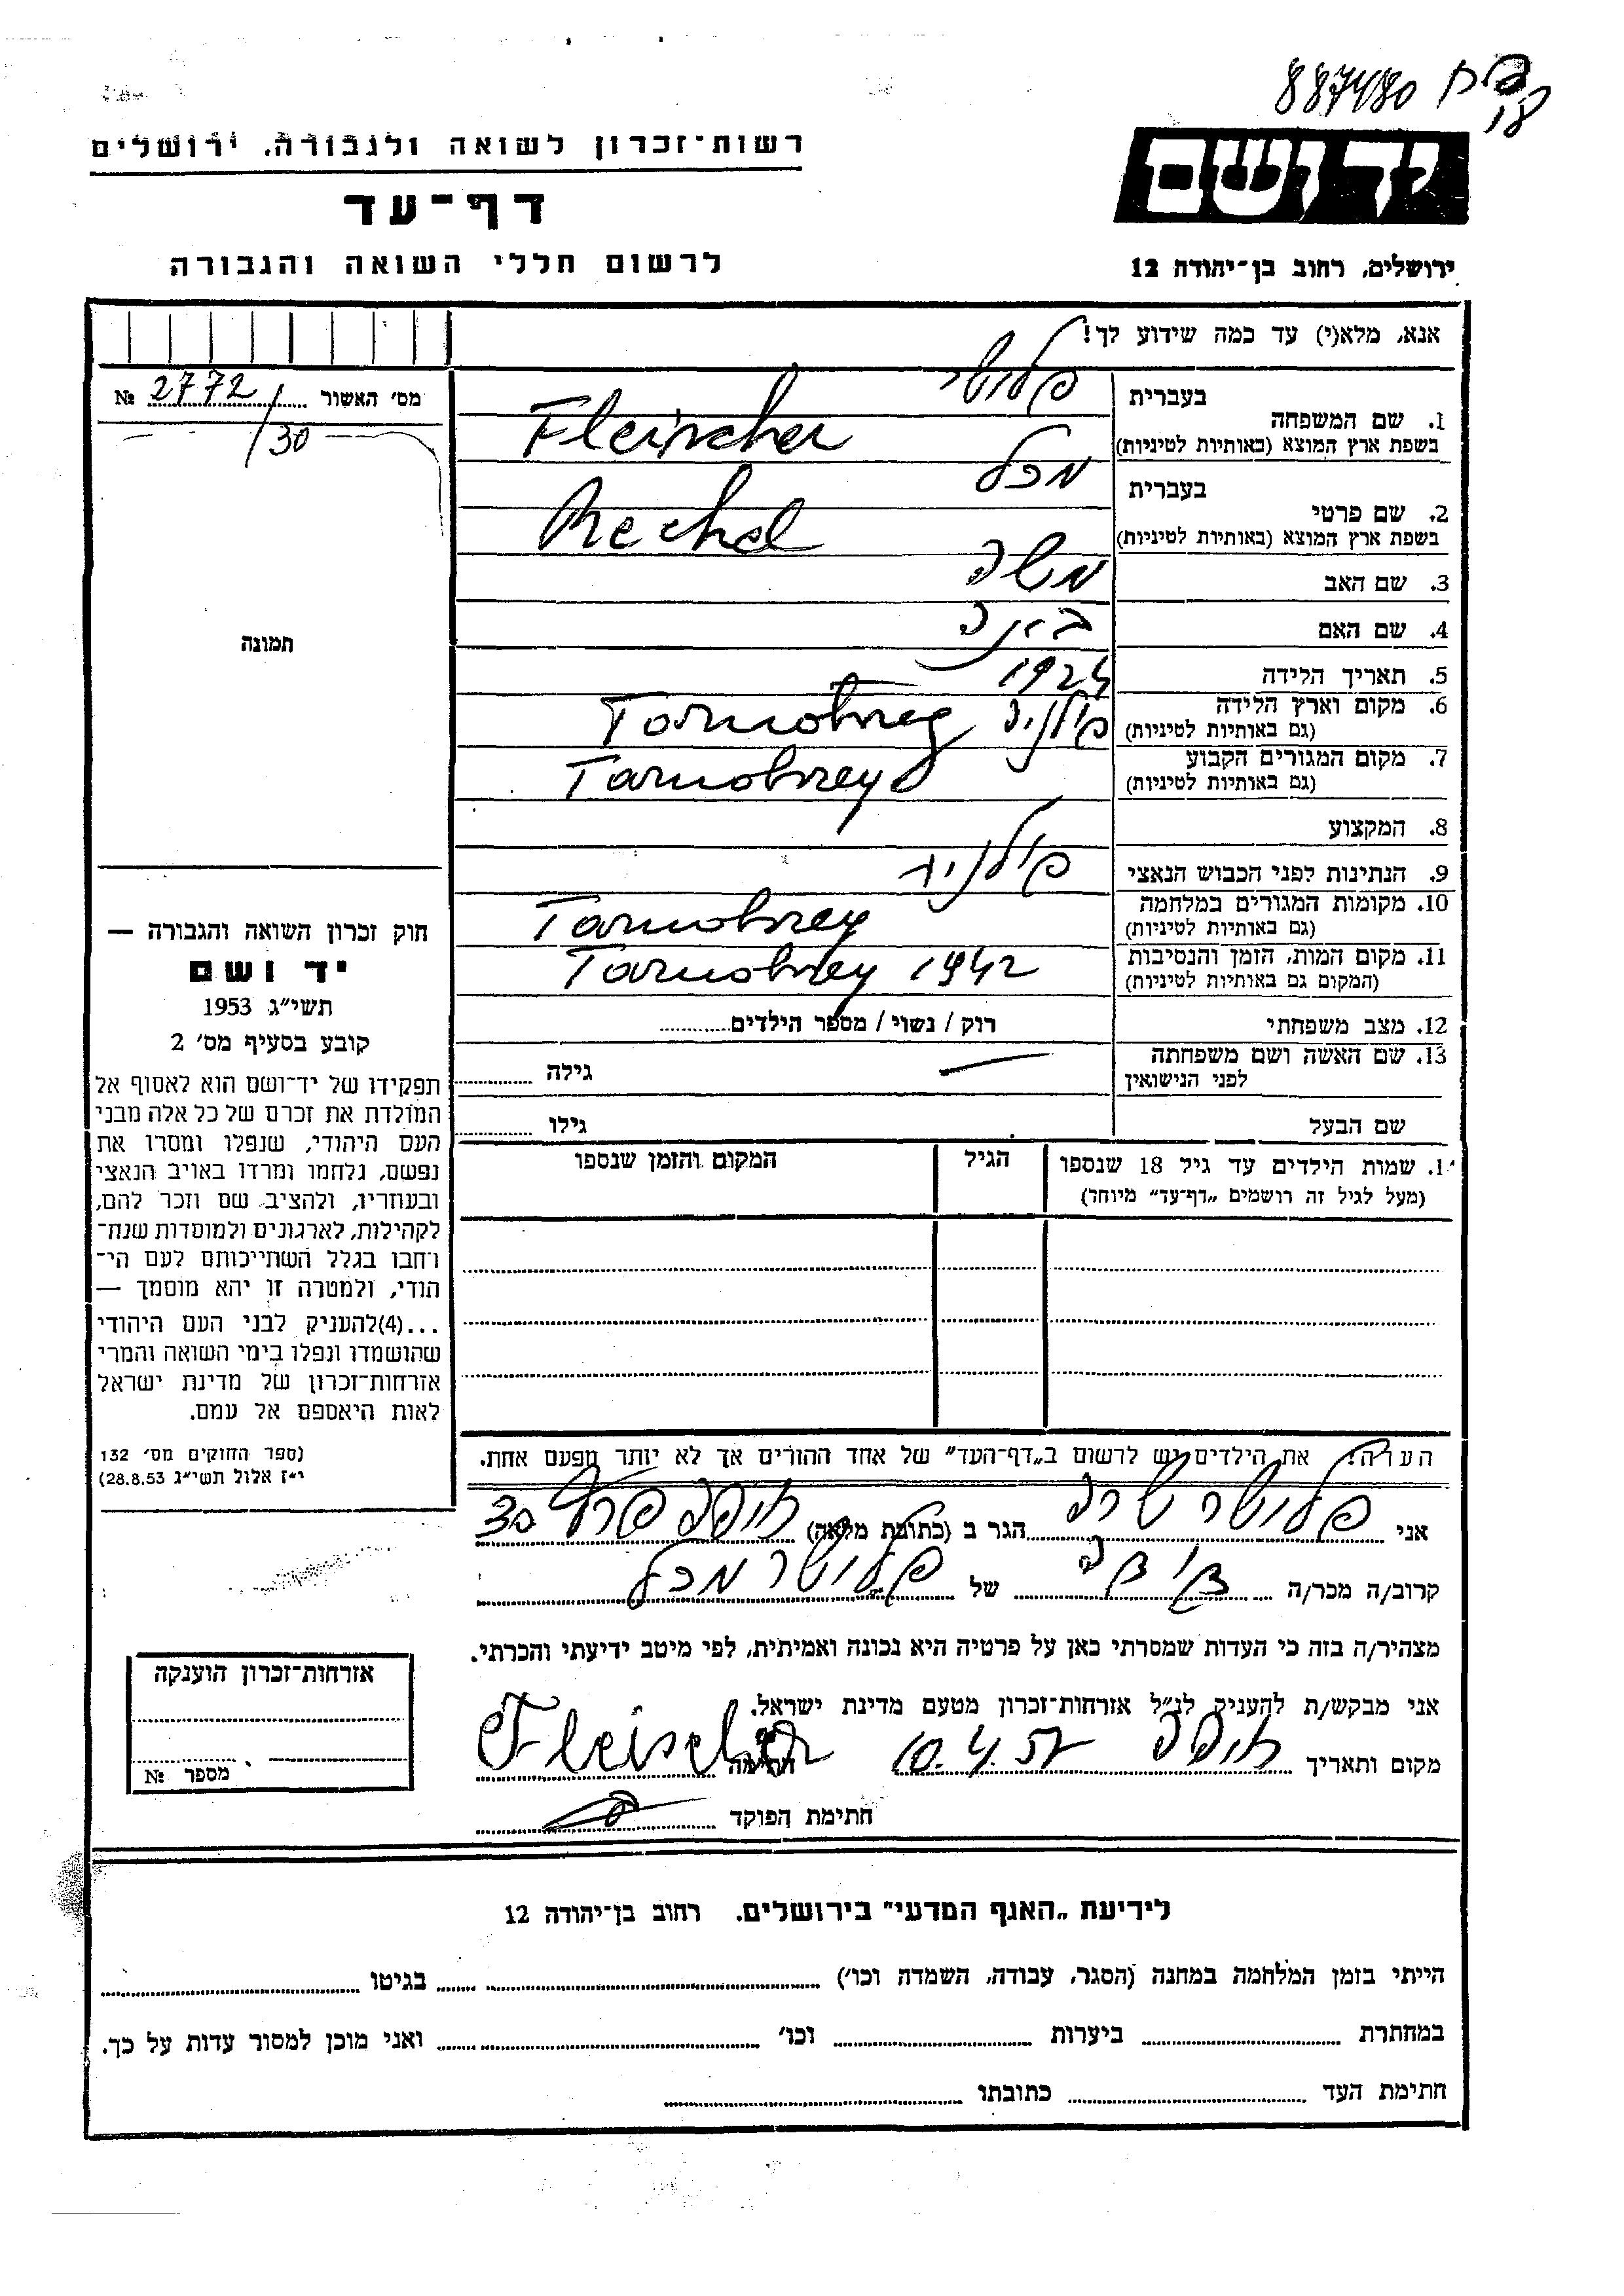 887480
18
רשות-זכרון לשואה ולגבורה, ירושלים
יד ושם
דף-עד
לרשום חללי השואה והגבורה
ירושלים, רחוב בן-יהודה 12
אנא, מלא(י) עד כמה שידוע לך!
מס׳ האשור 2772/30 №
תמונה
בעברית
1. שם המשפחה
בשפת ארץ המוצא (באותיות לטיניות) Fleischer
בעברית מכל
2. שם פרטי
בשפת ארץ המוצא (באותיות לטיניות) Mechel
3. שם האב משה
4. שם האם
5. תאריך הלידה 1924
6. מקום וארץ הלידה פולניה Tarnobrzeg
(גם באותיות לטיניות)
7. מקום המגורים הקבוע Tarnobrzeg
(גם באותיות לטיניות)
8. המקצוע
9. הנתינות לפני הכבוש הנאצי פולניה
10. מקומות המגורים במלחמה Tarnobrzeg
(גם באותיות לטיניות)
11. מקום המות, הזמן והנסיבות Tarnobrzeg 1942
(המקום גם באותיות לטיניות)
12. מצב משפחתי רוק / נשוי / מספר הילדים
13. שם האשה ושם משפחתה — גילה
לפני הנישואין
שם הבעל גילו
1. שמות הילדים עד גיל 18 שנספו הגיל המקום והזמן שנספו
(מעל לגיל זה רושמים „דף-עד״ מיוחד)
חוק זכרון השואה והגבורה —
יד ושם
תשי״ג 1953
קובע בסעיף מס׳ 2
תפקידו של יד-ושם הוא לאסוף אל
המולדת את זכרם של כל אלה מבני
העם היהודי, שנפלו ומסרו את
נפשם, נלחמו ומרדו באויב הנאצי
ובעוזריו, ולהציב שם וזכר להם,
לקהילות, לארגונים ולמוסדות שנח-
רחבו בגלל השתייכותם לעם הי-
הודי, ולמטרה זו יהא מוסמך —
...(4)להעניק לבני העם היהודי
שהושמדו ונפלו בימי השואה והמרי
אזרחות-זכרון של מדינת ישראל
לאות היאספם אל עמם.
(ספר החוקים מס׳ 132
י״ז אלול תשי״ג 28.8.53)
הערה: את הילדים יש לרשום ב„דף-העד״ של אחד ההורים אך לא יותר מפעם אחת.
אני פלישר שרה הגר ב (כתובת מלאה) חיפה
קרוב/ה מכר/ה של פלישר מכל
מצהיר/ה בזה כי העדות שמסרתי כאן על פרטיה היא נכונה ואמיתית, לפי מיטב ידיעתי והכרתי.
אני מבקש/ת להעניק לנ״ל אזרחות-זכרון מטעם מדינת ישראל.
מקום ותאריך חיפה 10.4.57 חתימה Fleischer
חתימת הפוקד
אזרחות-זכרון הוענקה
מספר №
לידיעת „האגף המדעי״ בירושלים. רחוב בן-יהודה 12
הייתי בזמן המלחמה במחנה (הסגר, עבודה, השמדה וכו׳) בגיטו
במחתרת ביערות וכו׳ ואני מוכן למסור עדות על כך.
חתימת העד כתובתו